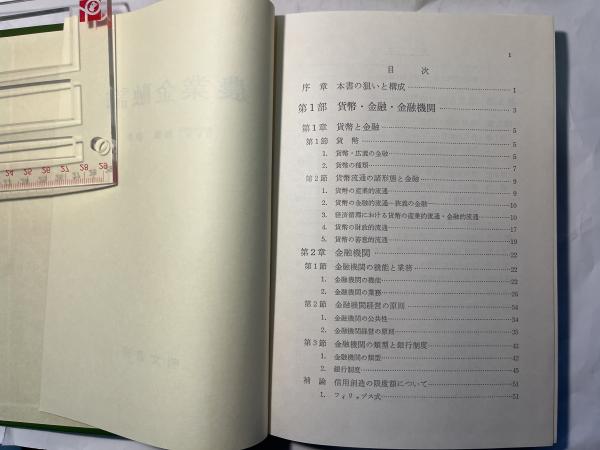 農業金融論
24 25 26 27 28 29
1
目次
序章 本書の狙いと構成 1
第1部 貨幣・金融・金融機関 3
第1章 貨幣と金融 5
第1節 貨幣 5
1. 貨幣・広義の金融 5
2. 貨幣の種類 7
第2節 貨幣流通の諸形態と金融 9
1. 貨幣の産業的流通 9
2. 貨幣の金融的流通―狭義の金融 10
3. 経済循環における貨幣の産業的流通・金融的流通 10
4. 貨幣の財政的流通 17
5. 貨幣の善意的流通 19
第2章 金融機関 22
第1節 金融機関の機能と業務 22
1. 金融機関の機能 22
2. 金融機関の業務 26
第2節 金融機関経営の原則 34
1. 金融機関の公共性 34
2. 金融機関経営の原則 35
第3節 金融機関の類型と銀行制度 42
1. 金融機関の類型 42
2. 銀行制度 45
補論 信用創造の限度額について 51
1. フィリップス式 51